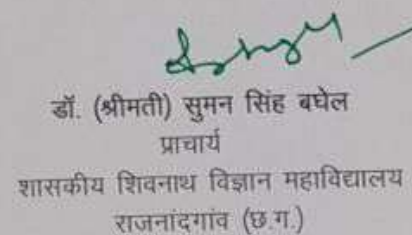 डॉ. (श्रीमती) सुमन सिंह बघेल
प्राचार्य
शासकीय शिवनाथ विज्ञान महाविद्यालय
राजनांदगांव (छ.ग.)